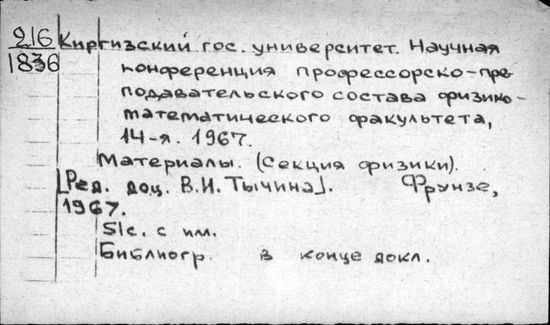 216
1836
Киргизский гос. университет. Научная
конференция профессорско-пре-
подавательского состава физико-
математического факультета,
14-я. 1967.
Материалы. (Секция физики).
[Ред. доц. В.И. Тычина]. Фрунзе,
1967.
51с. с ил.
Библиогр. в конце докл.